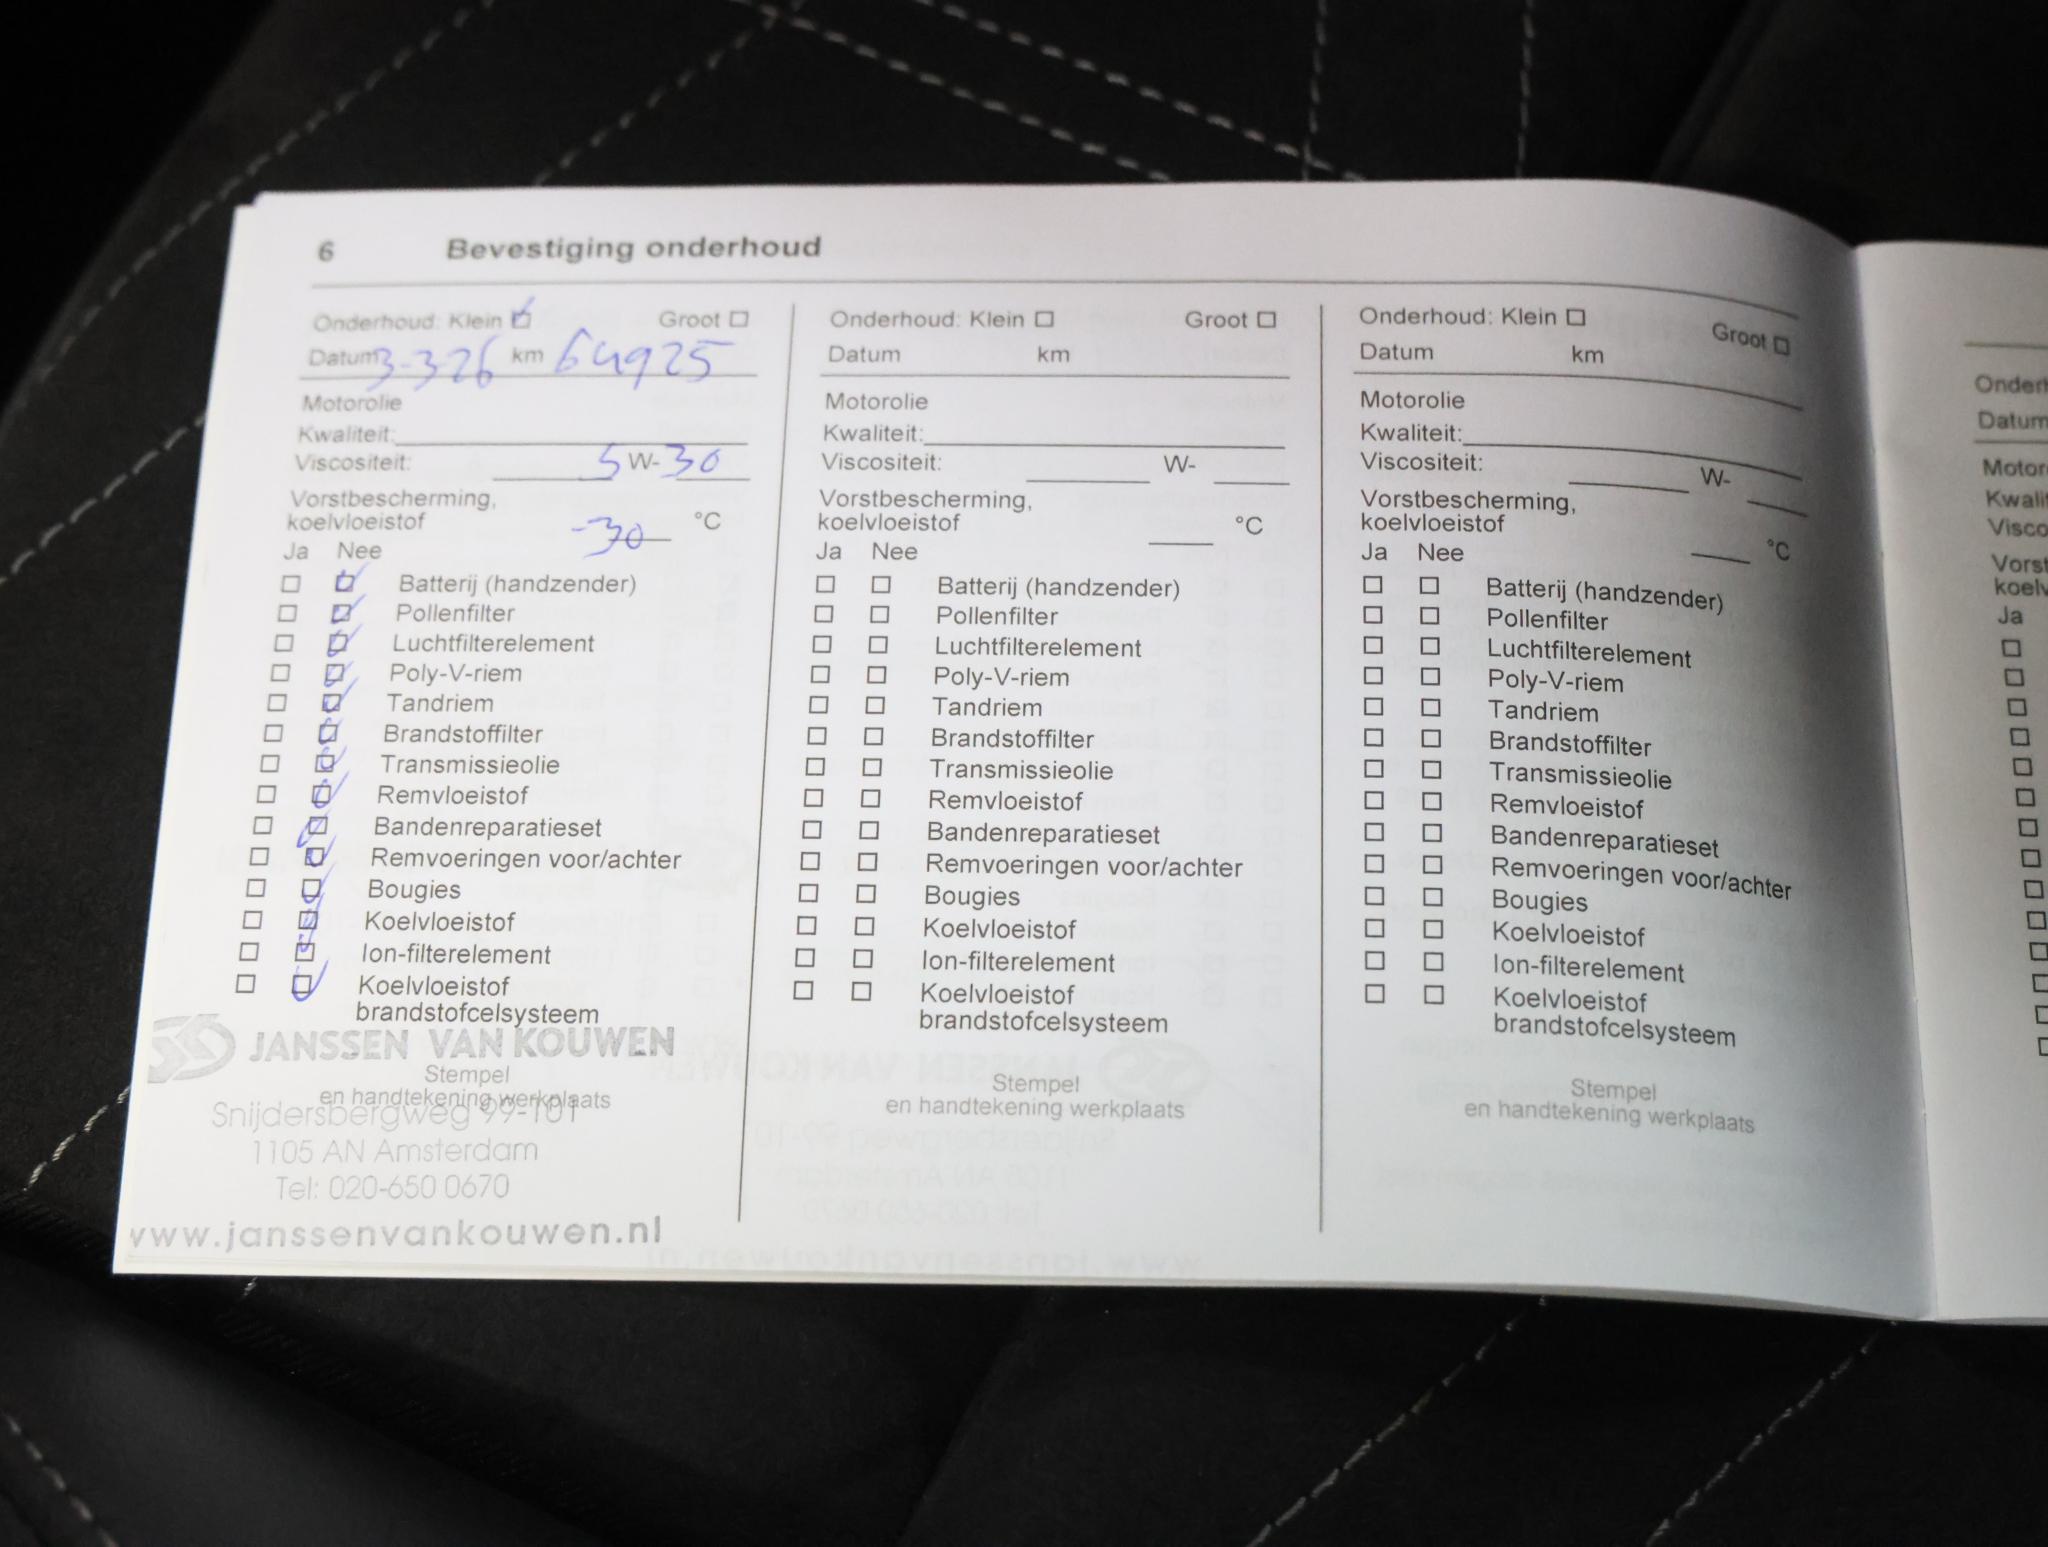 6 Bevestiging onderhoud
Onderhoud: Klein Groot
Datum 3-3-26 km 64925
Motorolie
Kwaliteit:
Viscositeit: 5 W- 30
Vorstbescherming,
koelvloeistof -30 °C
Ja Nee
Batterij (handzender)
Pollenfilter
Luchtfilterelement
Poly-V-riem
Tandriem
Brandstoffilter
Transmissieolie
Remvloeistof
Bandenreparatieset
Remvoeringen voor/achter
Bougies
Koelvloeistof
Ion-filterelement
Koelvloeistof
brandstofcelsysteem
JANSSEN VAN KOUWEN
Stempel
en handtekening werkplaats
Snijdersbergweg 99-101
1105 AN Amsterdam
Tel: 020-650 0670
www.janssenvankouwen.nl
Onderhoud: Klein Groot
Datum km
Motorolie
Kwaliteit:
Viscositeit: W-
Vorstbescherming,
koelvloeistof °C
Ja Nee
Batterij (handzender)
Pollenfilter
Luchtfilterelement
Poly-V-riem
Tandriem
Brandstoffilter
Transmissieolie
Remvloeistof
Bandenreparatieset
Remvoeringen voor/achter
Bougies
Koelvloeistof
Ion-filterelement
Koelvloeistof
brandstofcelsysteem
Stempel
en handtekening werkplaats
Onderhoud: Klein Groot
Datum km
Motorolie
Kwaliteit:
Viscositeit: W-
Vorstbescherming,
koelvloeistof °C
Ja Nee
Batterij (handzender)
Pollenfilter
Luchtfilterelement
Poly-V-riem
Tandriem
Brandstoffilter
Transmissieolie
Remvloeistof
Bandenreparatieset
Remvoeringen voor/achter
Bougies
Koelvloeistof
Ion-filterelement
Koelvloeistof
brandstofcelsysteem
Stempel
en handtekening werkplaats
Onderh
Datum
Motor
Kwalit
Visco
Vorst
koelv
Ja